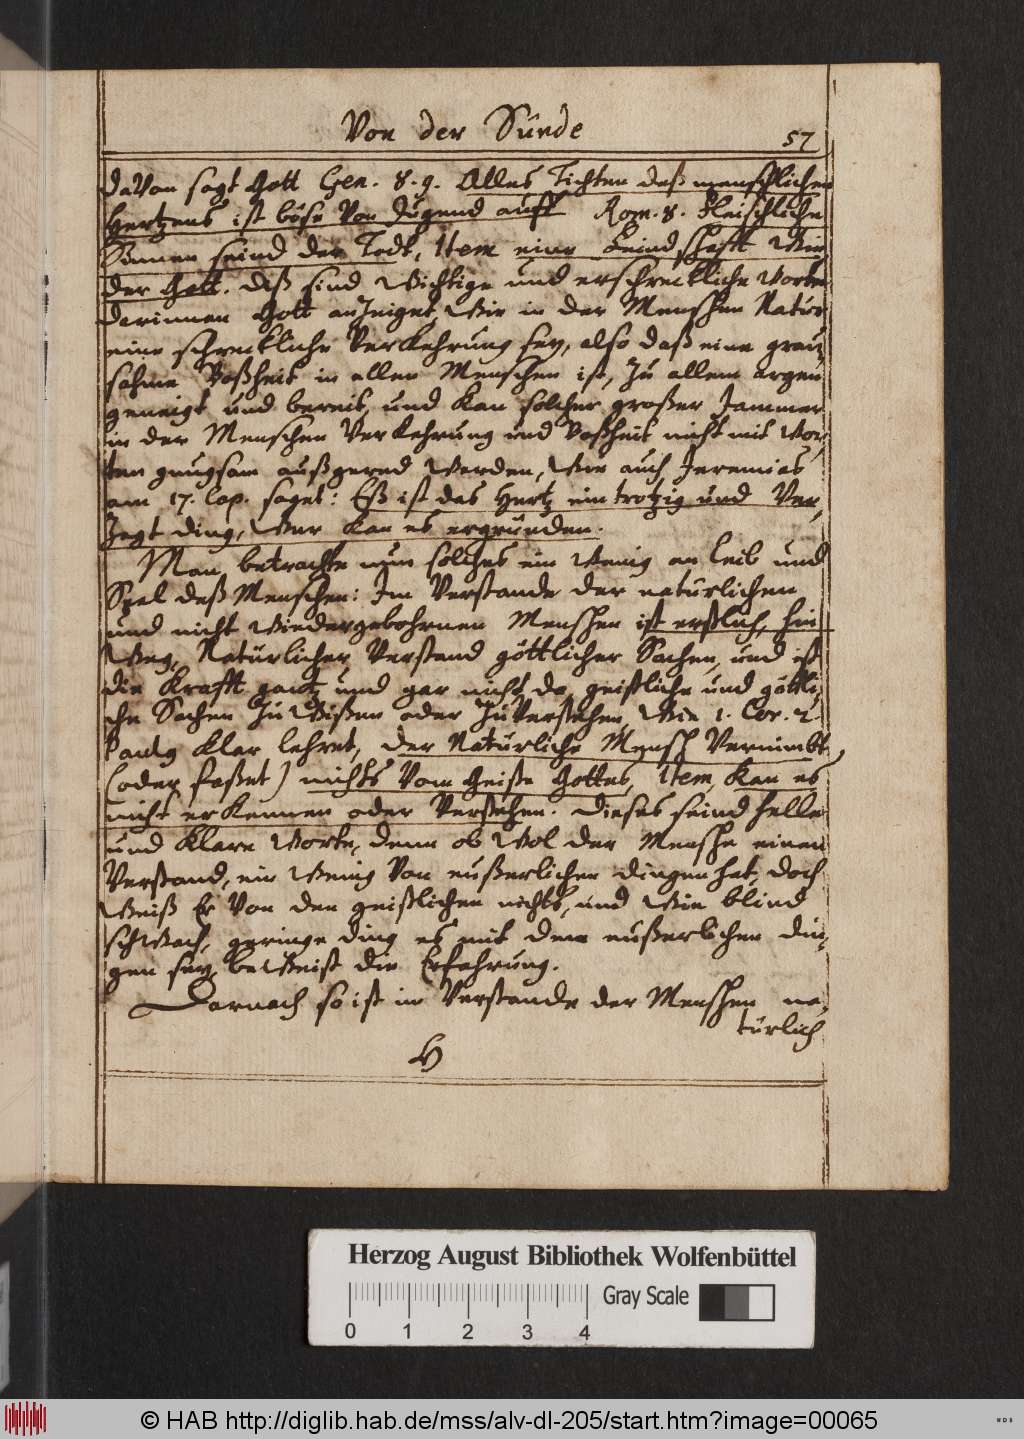 Von der Sünde
57
daVon sagt Gott Gen. 8. 9. Alles Tichten deß menschlichen
Hertzens ist böse Von Jugend auff Rom. 8. Fleischliche
Sinnen seind der Todt, Item eine Feindschafft Wi
der Gott. diß sind Wichtige und erschreckliche Worte
darinnen Gott anzeiget, Wie in der Menschen Natur
eine schreckliche VerKehrung sey, also daß eine grau,
sahme Boßheit in allen Menschen ist, zu allem argen
geneigt und bereit, und Kan solcher großer Jammer
in der Menschen VerKehrung und Boßheit nicht mit Wor,
ten gnugsam außgeredt Werden, Wie auch Jeremias
am 17. Cap. saget: Eß ist das Hertz ein trotzig und Ver,
zagt ding, Wer Kan es ergründen.
Man betrachte nun solches ein Wenig an Leib und
Seel deß Menschen: Im Verstande der natürlichen
und nicht Wiedergebohrnen Menschen ist erstlich, hin
Weg, Natürlicher Verstand göttlicher Sachen, und ist
die Krafft gantz und gar nicht da, geistliche und göttli,
che Sachen zu Wißen oder zuVerstehen, Wie 1. Cor. 2.
Paulus Klar lehret, der Natürliche Mensch Vernimbt,
(oder faßet) nichts Vom Geiste Gottes, Item, Kan es
nicht erKennen oder Verstehen. dieses seind helle
und Klare Worte, denn ob Wol der Mensche einen
Verstand, ein Wenig Von eußerlichen dingen hat, doch
Weiß Er Von den geistlichen nichts, und Wie blind
schWach, geringe ding es mit den eußerlichen din,
gen sey, beWeist die Erfahrung.
Darnach so ist im Verstande der Menschen na,
türlich
H
Herzog August Bibliothek Wolfenbüttel
Gray Scale
0 1 2 3 4
© HAB http://diglib.hab.de/mss/alv-dl-205/start.htm?image=00065
WDB